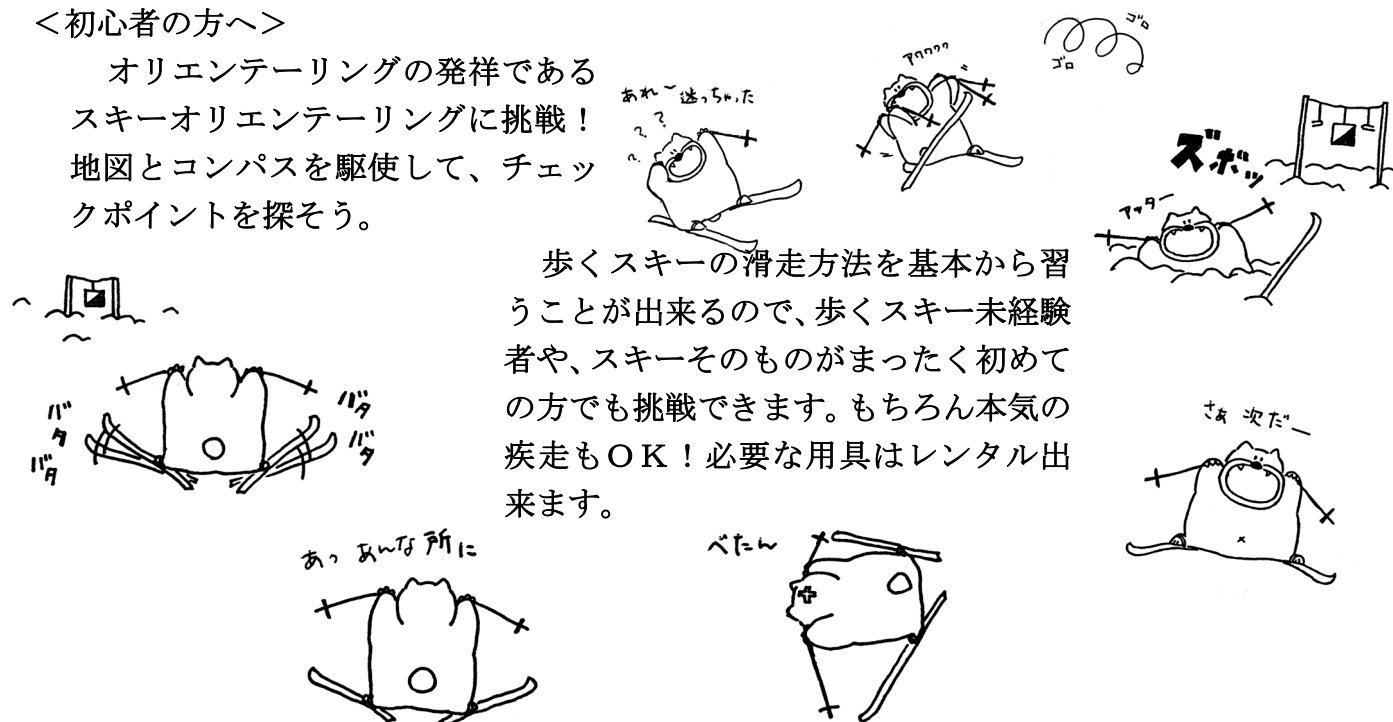 ＜初心者の方へ＞
オリエンテーリングの発祥である
スキーオリエンテーリングに挑戦！
地図とコンパスを駆使して、チェッ
クポイントを探そう。
あれ〜迷っちゃった
？？？
アワワワ
ゴロ
ゴロ
ズボッ
アッター
歩くスキーの滑走方法を基本から習
うことが出来るので、歩くスキー未経験
者や、スキーそのものがまったく初めて
の方でも挑戦できます。もちろん本気の
疾走もＯＫ！必要な用具はレンタル出
来ます。
バタ
バタ
バタ
バタ
さぁ 次だー
あっ あんな所に
べたん